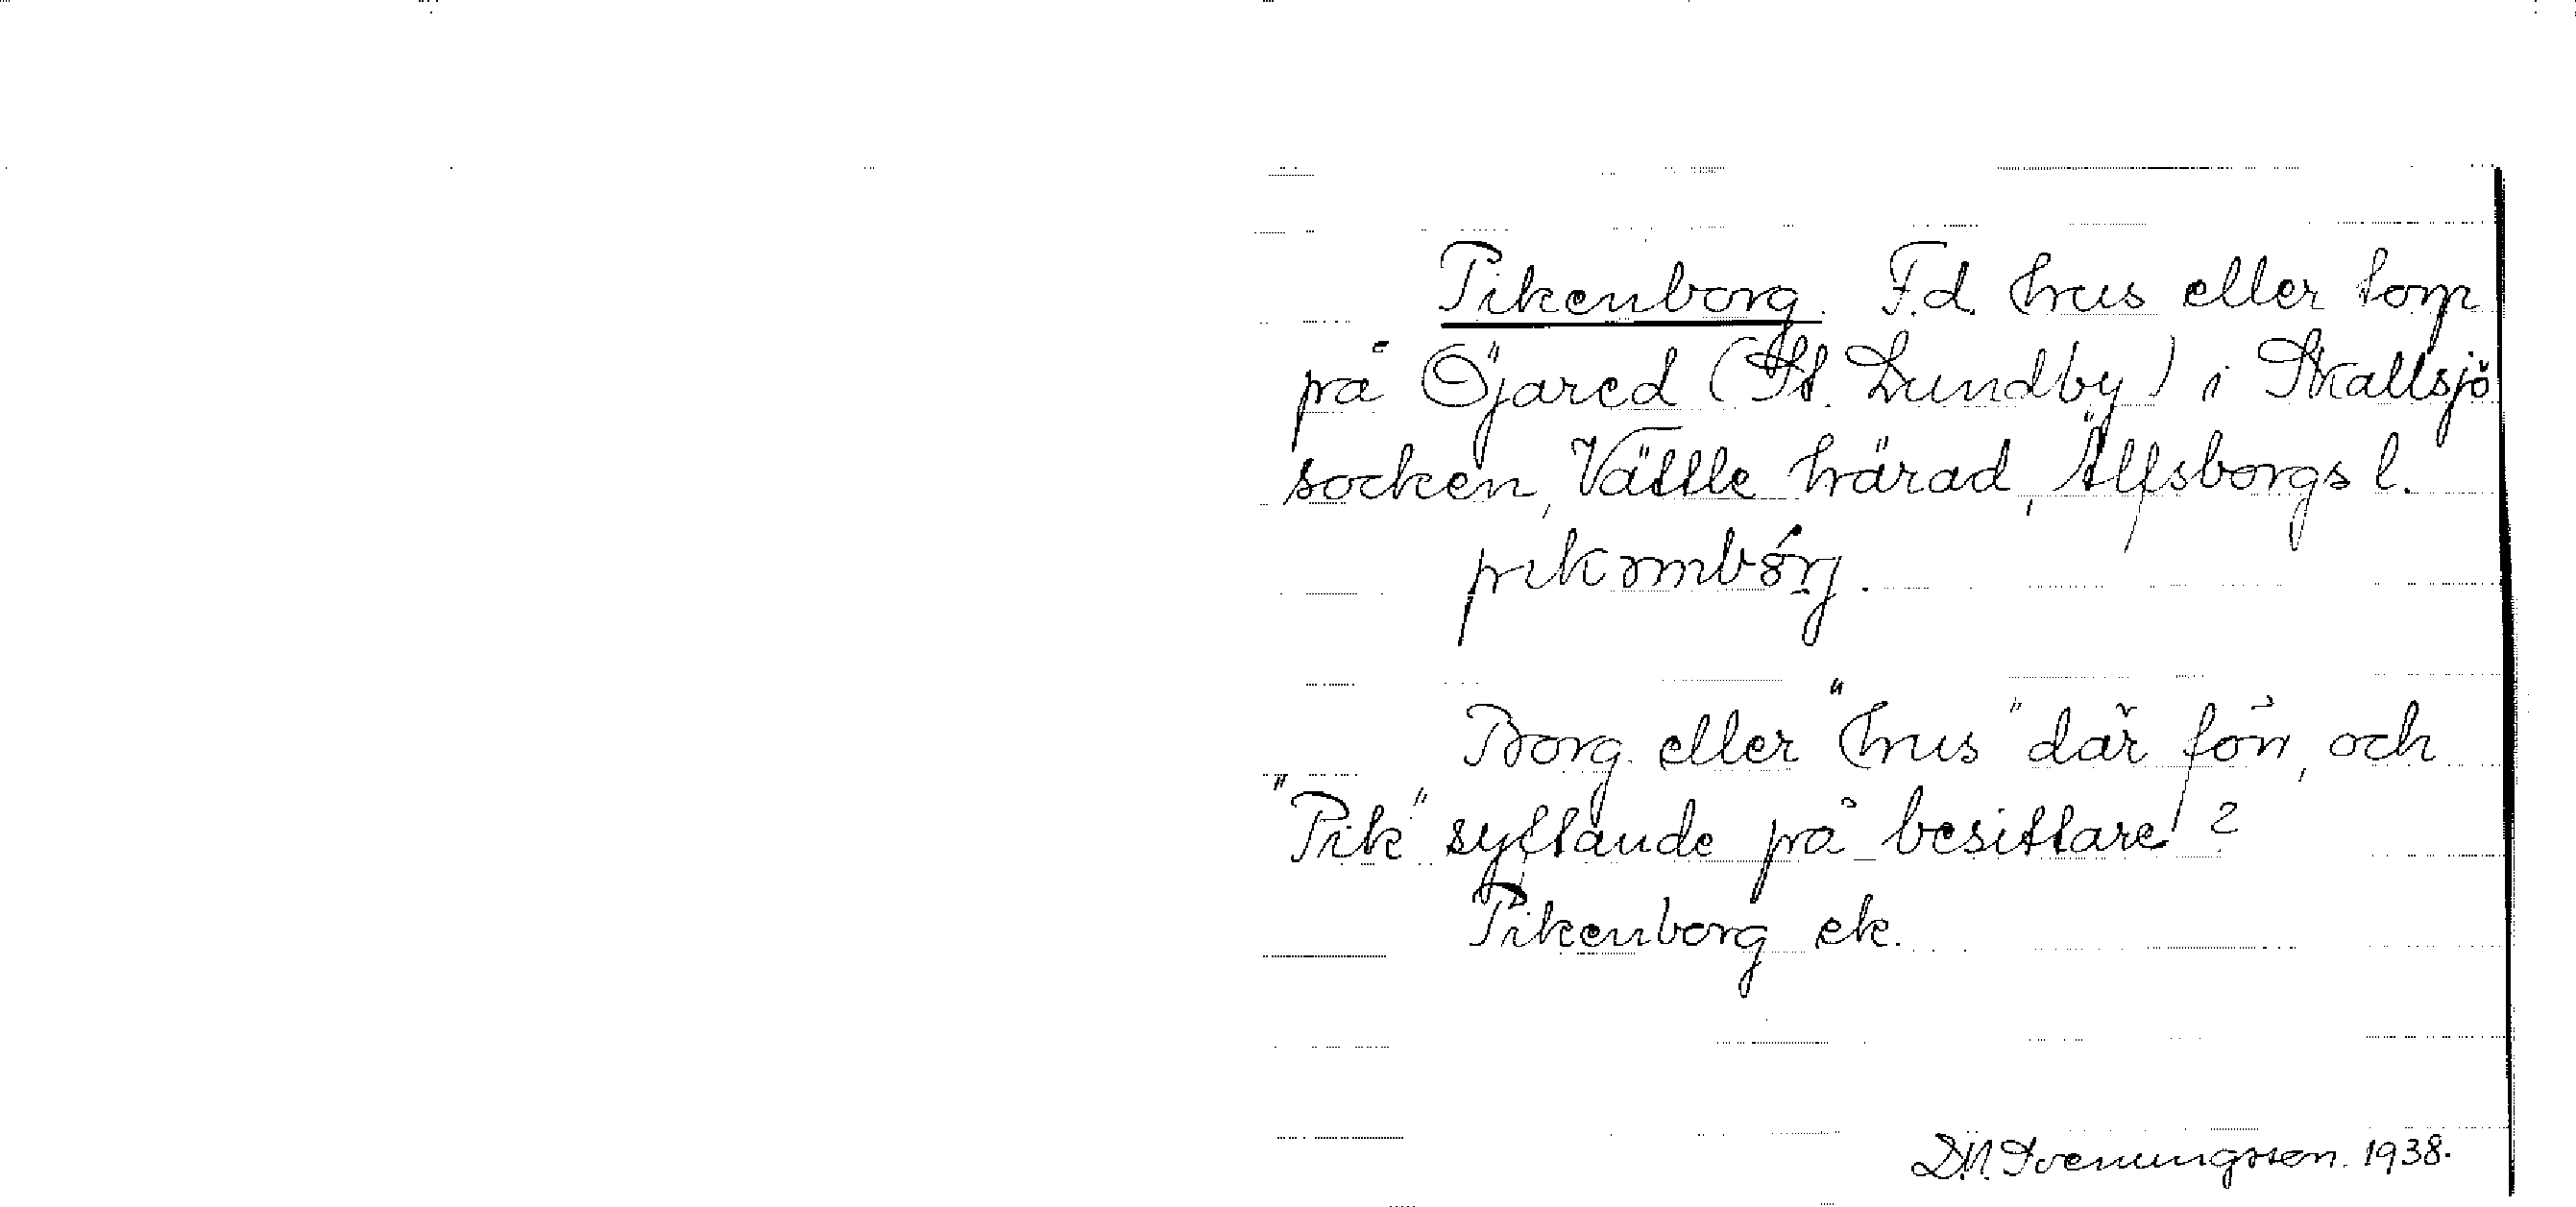 Pikenborg. F.d. hus eller torp
på Öjared (St. Lundby) i Skallsjö
socken, Vättle härad, Älfsborgs l.
Borg eller "hus" där förr, och
"Pik" syftande på besittare?
Pikenborg ek.
D.N. Svenungsson. 1938.